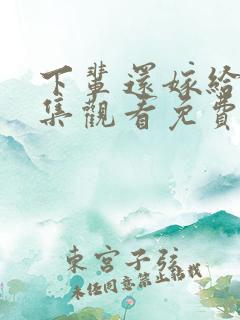 下輩還嫁給
集觀看免費
東宮子弦
未经同意禁止转载